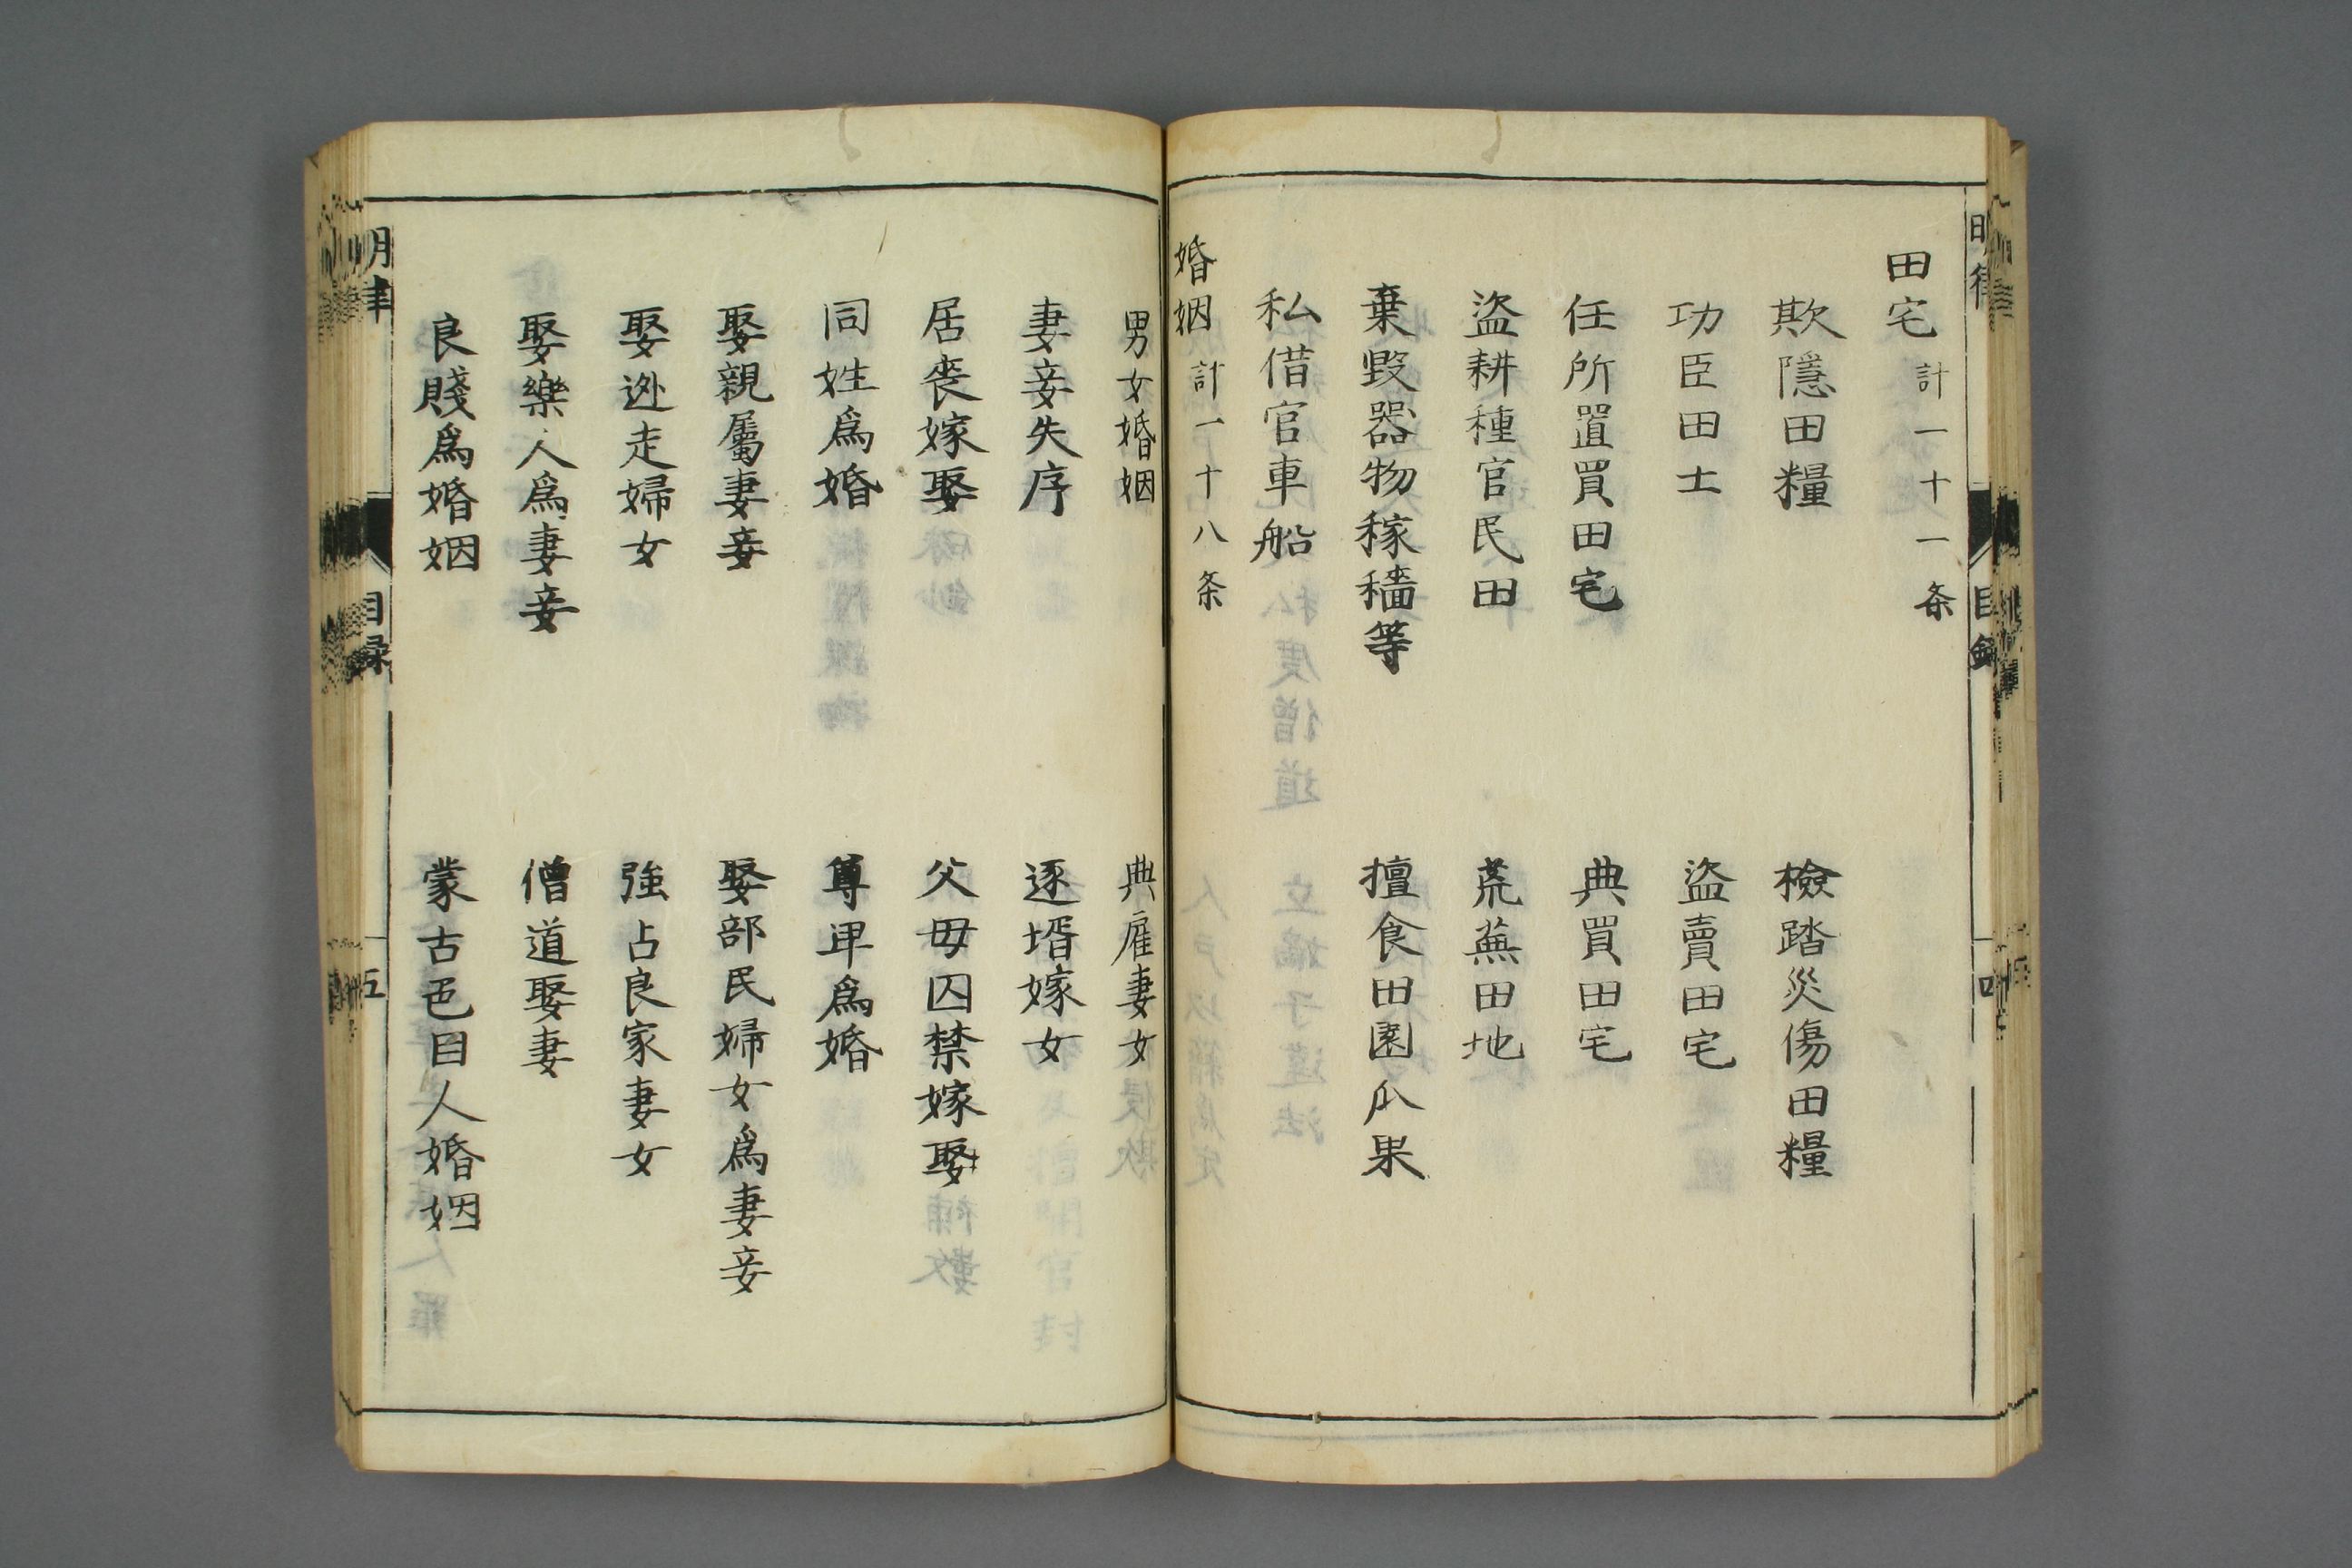 田宅 計一十一条
欺隱田糧
檢踏災傷田糧
功臣田土
盜賣田宅
任所置買田宅
典買田宅
盜耕種官民田
荒蕪田地
棄毀器物稼穡等
擅食田園瓜果
私借官車船
婚姻 計一十八条
男女婚姻
典雇妻女
妻妾失序
逐壻嫁女
居喪嫁娶
父母囚禁嫁娶
同姓爲婚
尊卑爲婚
娶親屬妻妾
娶部民婦女爲妻妾
娶逃走婦女
強占良家妻女
娶樂人爲妻妾
僧道娶妻
良賤爲婚姻
蒙古色目人婚姻
明律
目録
五